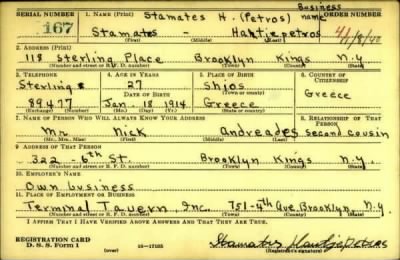 Business
SERIAL NUMBER 1. NAME (Print) Stamates H. (Petros) name ORDER NUMBER
167 Stamates - Hatziepetros
(First) (Middle) (Last)
2. ADDRESS (Print)
118 Sterling Place Brooklyn Kings N.Y
(Number and street or R. F. D. number) (Town) (County) (State)
3. TELEPHONE 4. AGE IN YEARS 5. PLACE OF BIRTH 6. COUNTRY OF CITIZENSHIP
Sterling 27 Shios Greece
89477 Jan 18 1914 Greece
(Exchange) (Number) (Mo.) (Day) (Yr.) (State or country)
7. NAME OF PERSON WHO WILL ALWAYS KNOW YOUR ADDRESS 8. RELATIONSHIP OF THAT PERSON
Mr. Nick Andreades second cousin
(Mr., Mrs., Miss) (First) (Middle) (Last)
9. ADDRESS OF THAT PERSON
322 - 6th St. Brooklyn Kings N.Y.
(Number and street or R. F. D. number) (Town) (County) (State)
10. EMPLOYER'S NAME
Own business
11. PLACE OF EMPLOYMENT OR BUSINESS
Terminal Tavern, Inc. 751-4th Ave Brooklyn, N.Y.
(Number and street or R. F. D. number) (Town) (County) (State)
I AFFIRM THAT I HAVE VERIFIED ABOVE ANSWERS AND THAT THEY ARE TRUE.
REGISTRATION CARD
D. S. S. Form 1 (over) 16-17105
(Registrant's signature)